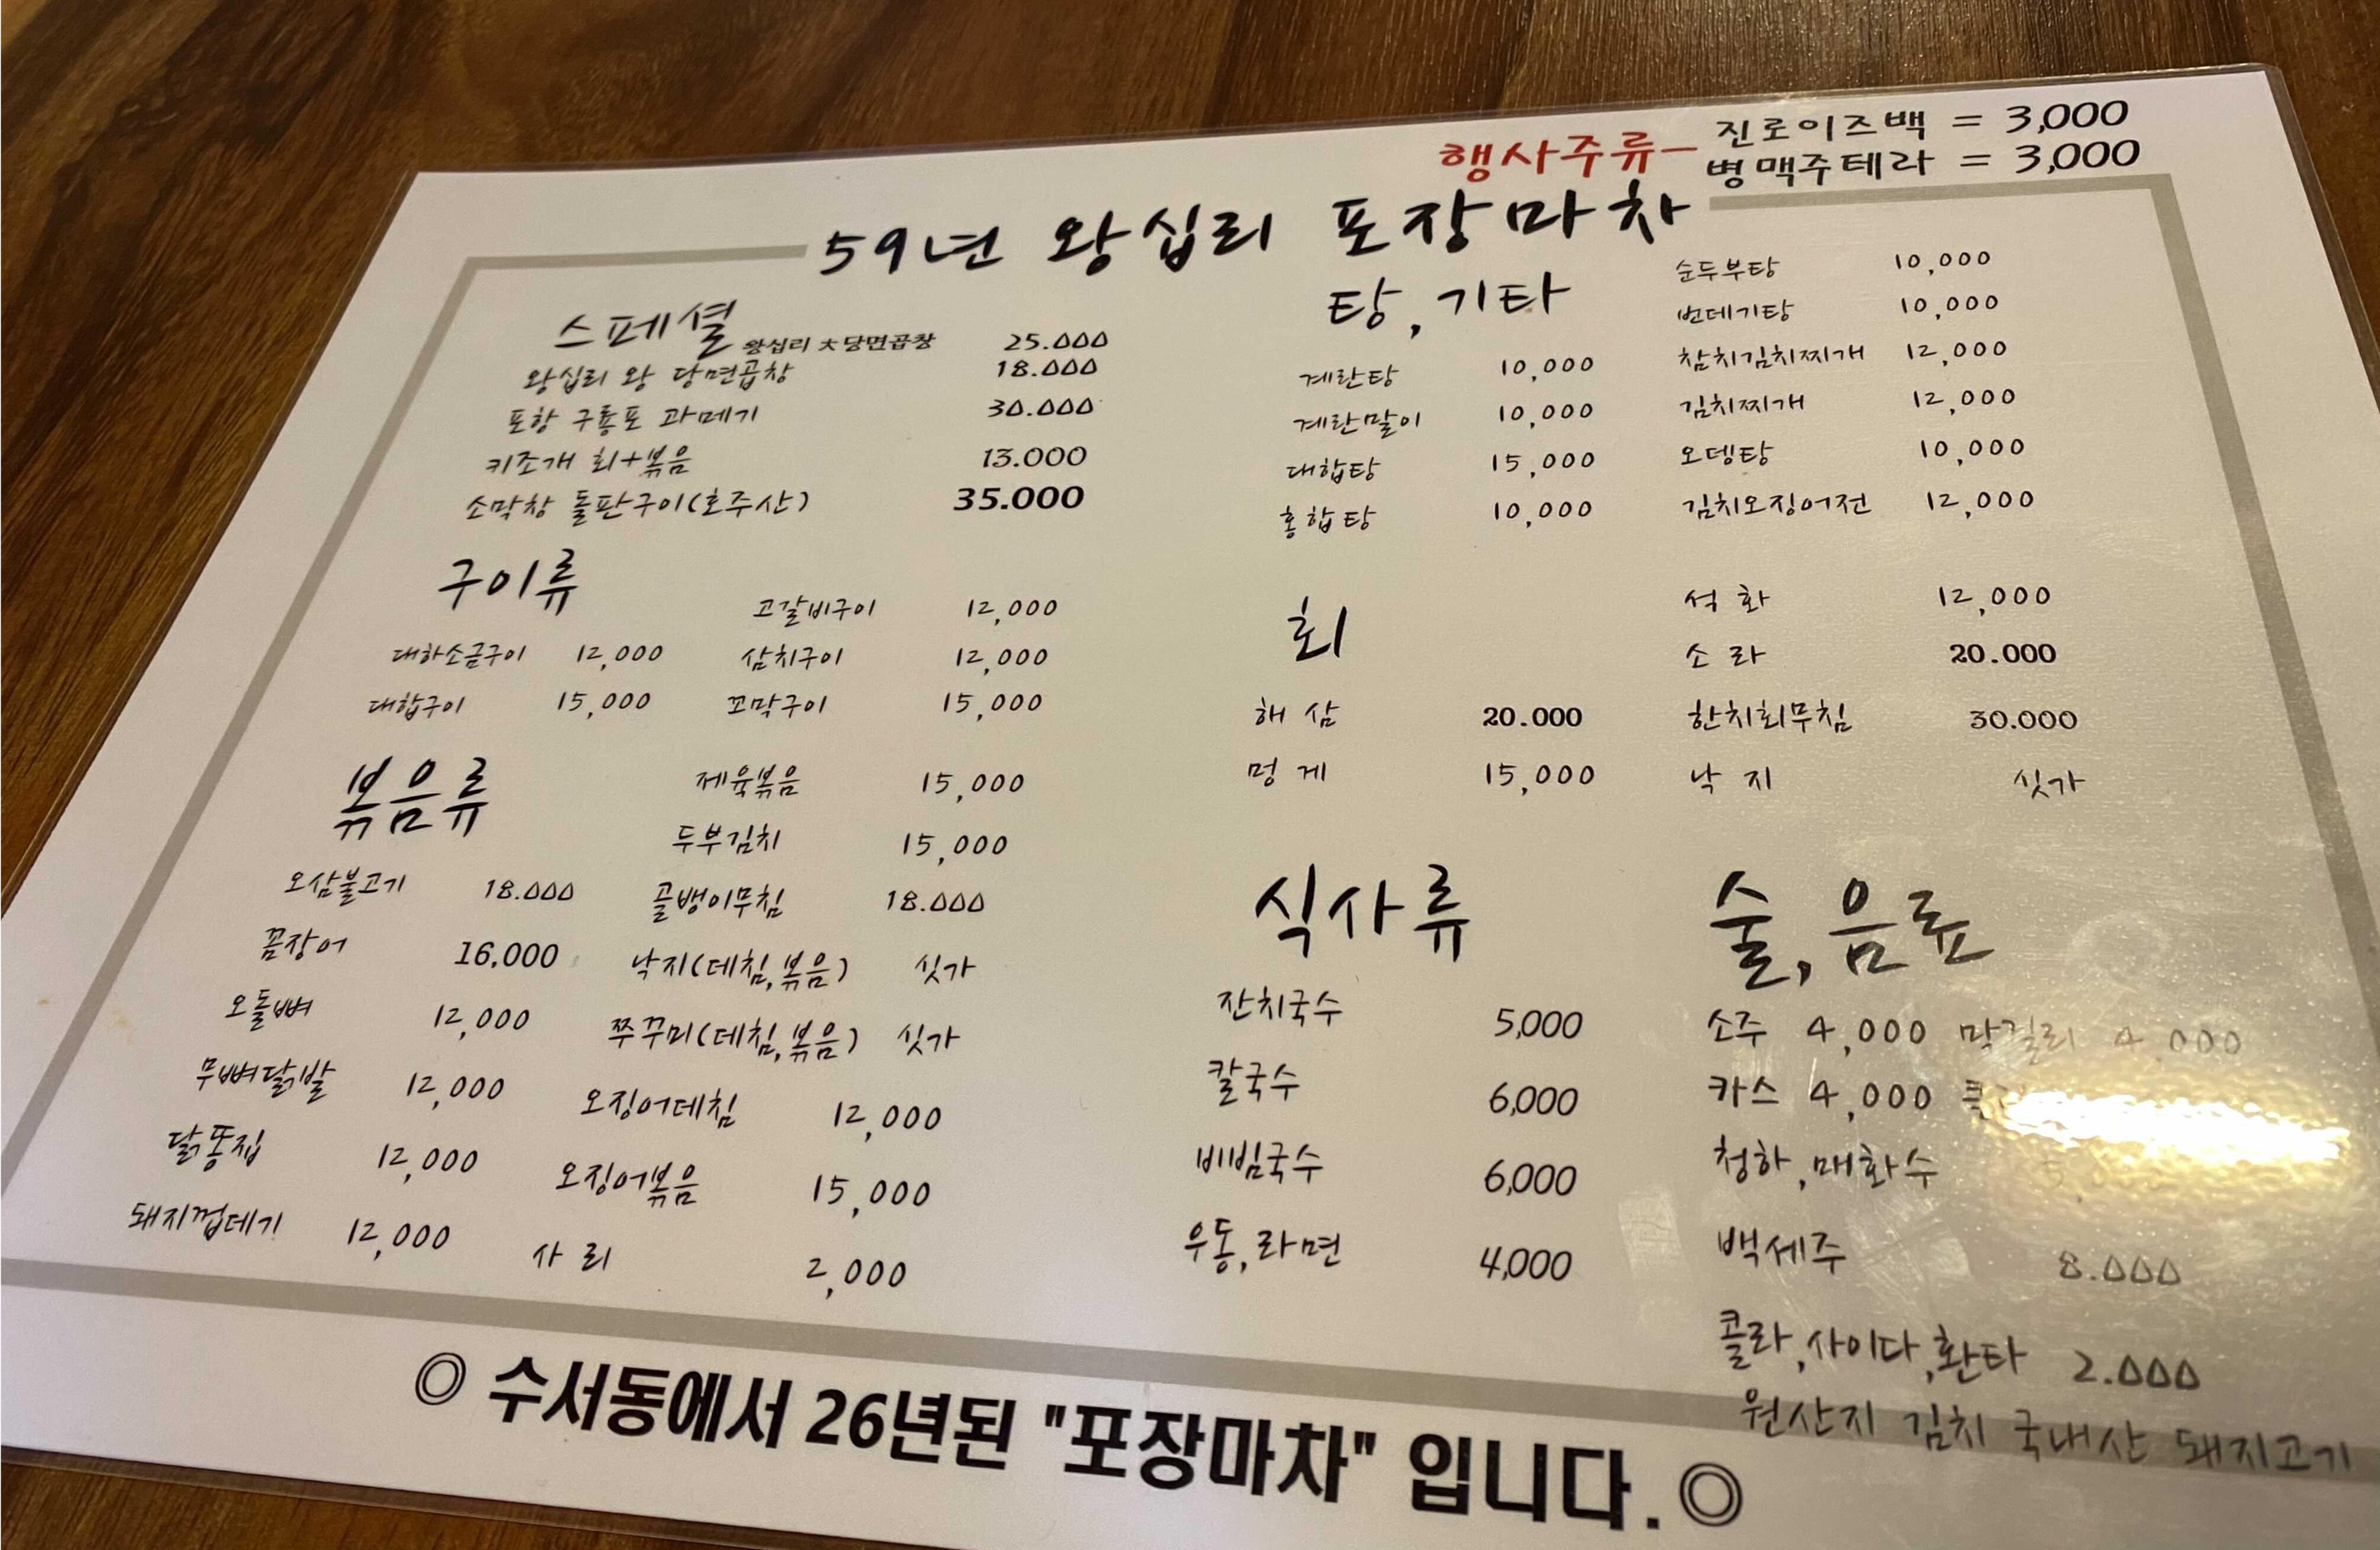 행사주류- 진로이즈백 = 3,000
병맥주테라 = 3,000
59년 왕십리 포장마차
스페셜
왕십리 大 당면곱창 25.000
왕십리 왕 당면곱창 18.000
포항 구룡포 과메기 30.000
키조개 회+볶음 13.000
소막창 돌판구이(호주산) 35.000
구이류
고갈비구이 12,000
대하소금구이 12,000 삼치구이 12,000
대합구이 15,000 꼬막구이 15,000
볶음류
제육볶음 15,000
두부김치 15,000
오삼불고기 18.000 골뱅이무침 18.000
꼼장어 16,000 낙지(데침,볶음) 싯가
오돌뼈 12,000 쭈꾸미(데침,볶음) 싯가
무뼈닭발 12,000 오징어데침 12,000
닭똥집 12,000 오징어볶음 15,000
돼지껍데기 12,000 사 리 2,000
탕,기타
순두부탕 10,000
번데기탕 10,000
계란탕 10,000 참치김치찌개 12,000
계란말이 10,000 김치찌개 12,000
대합탕 15,000 오뎅탕 10,000
홍합탕 10,000 김치오징어전 12,000
회
석 화 12,000
소 라 20.000
해 삼 20.000 한치회무침 30.000
멍 게 15,000 낙 지 싯가
식사류
잔치국수 5,000
칼국수 6,000
비빔국수 6,000
우동,라면 4,000
술,음료
소주 4,000 막걸리 4,000
카스 4,000
청하,매화수 5,000
백세주 8.000
콜라,사이다,환타 2.000
원산지 김치 국내산 돼지고기
◎ 수서동에서 26년된 "포장마차" 입니다.◎